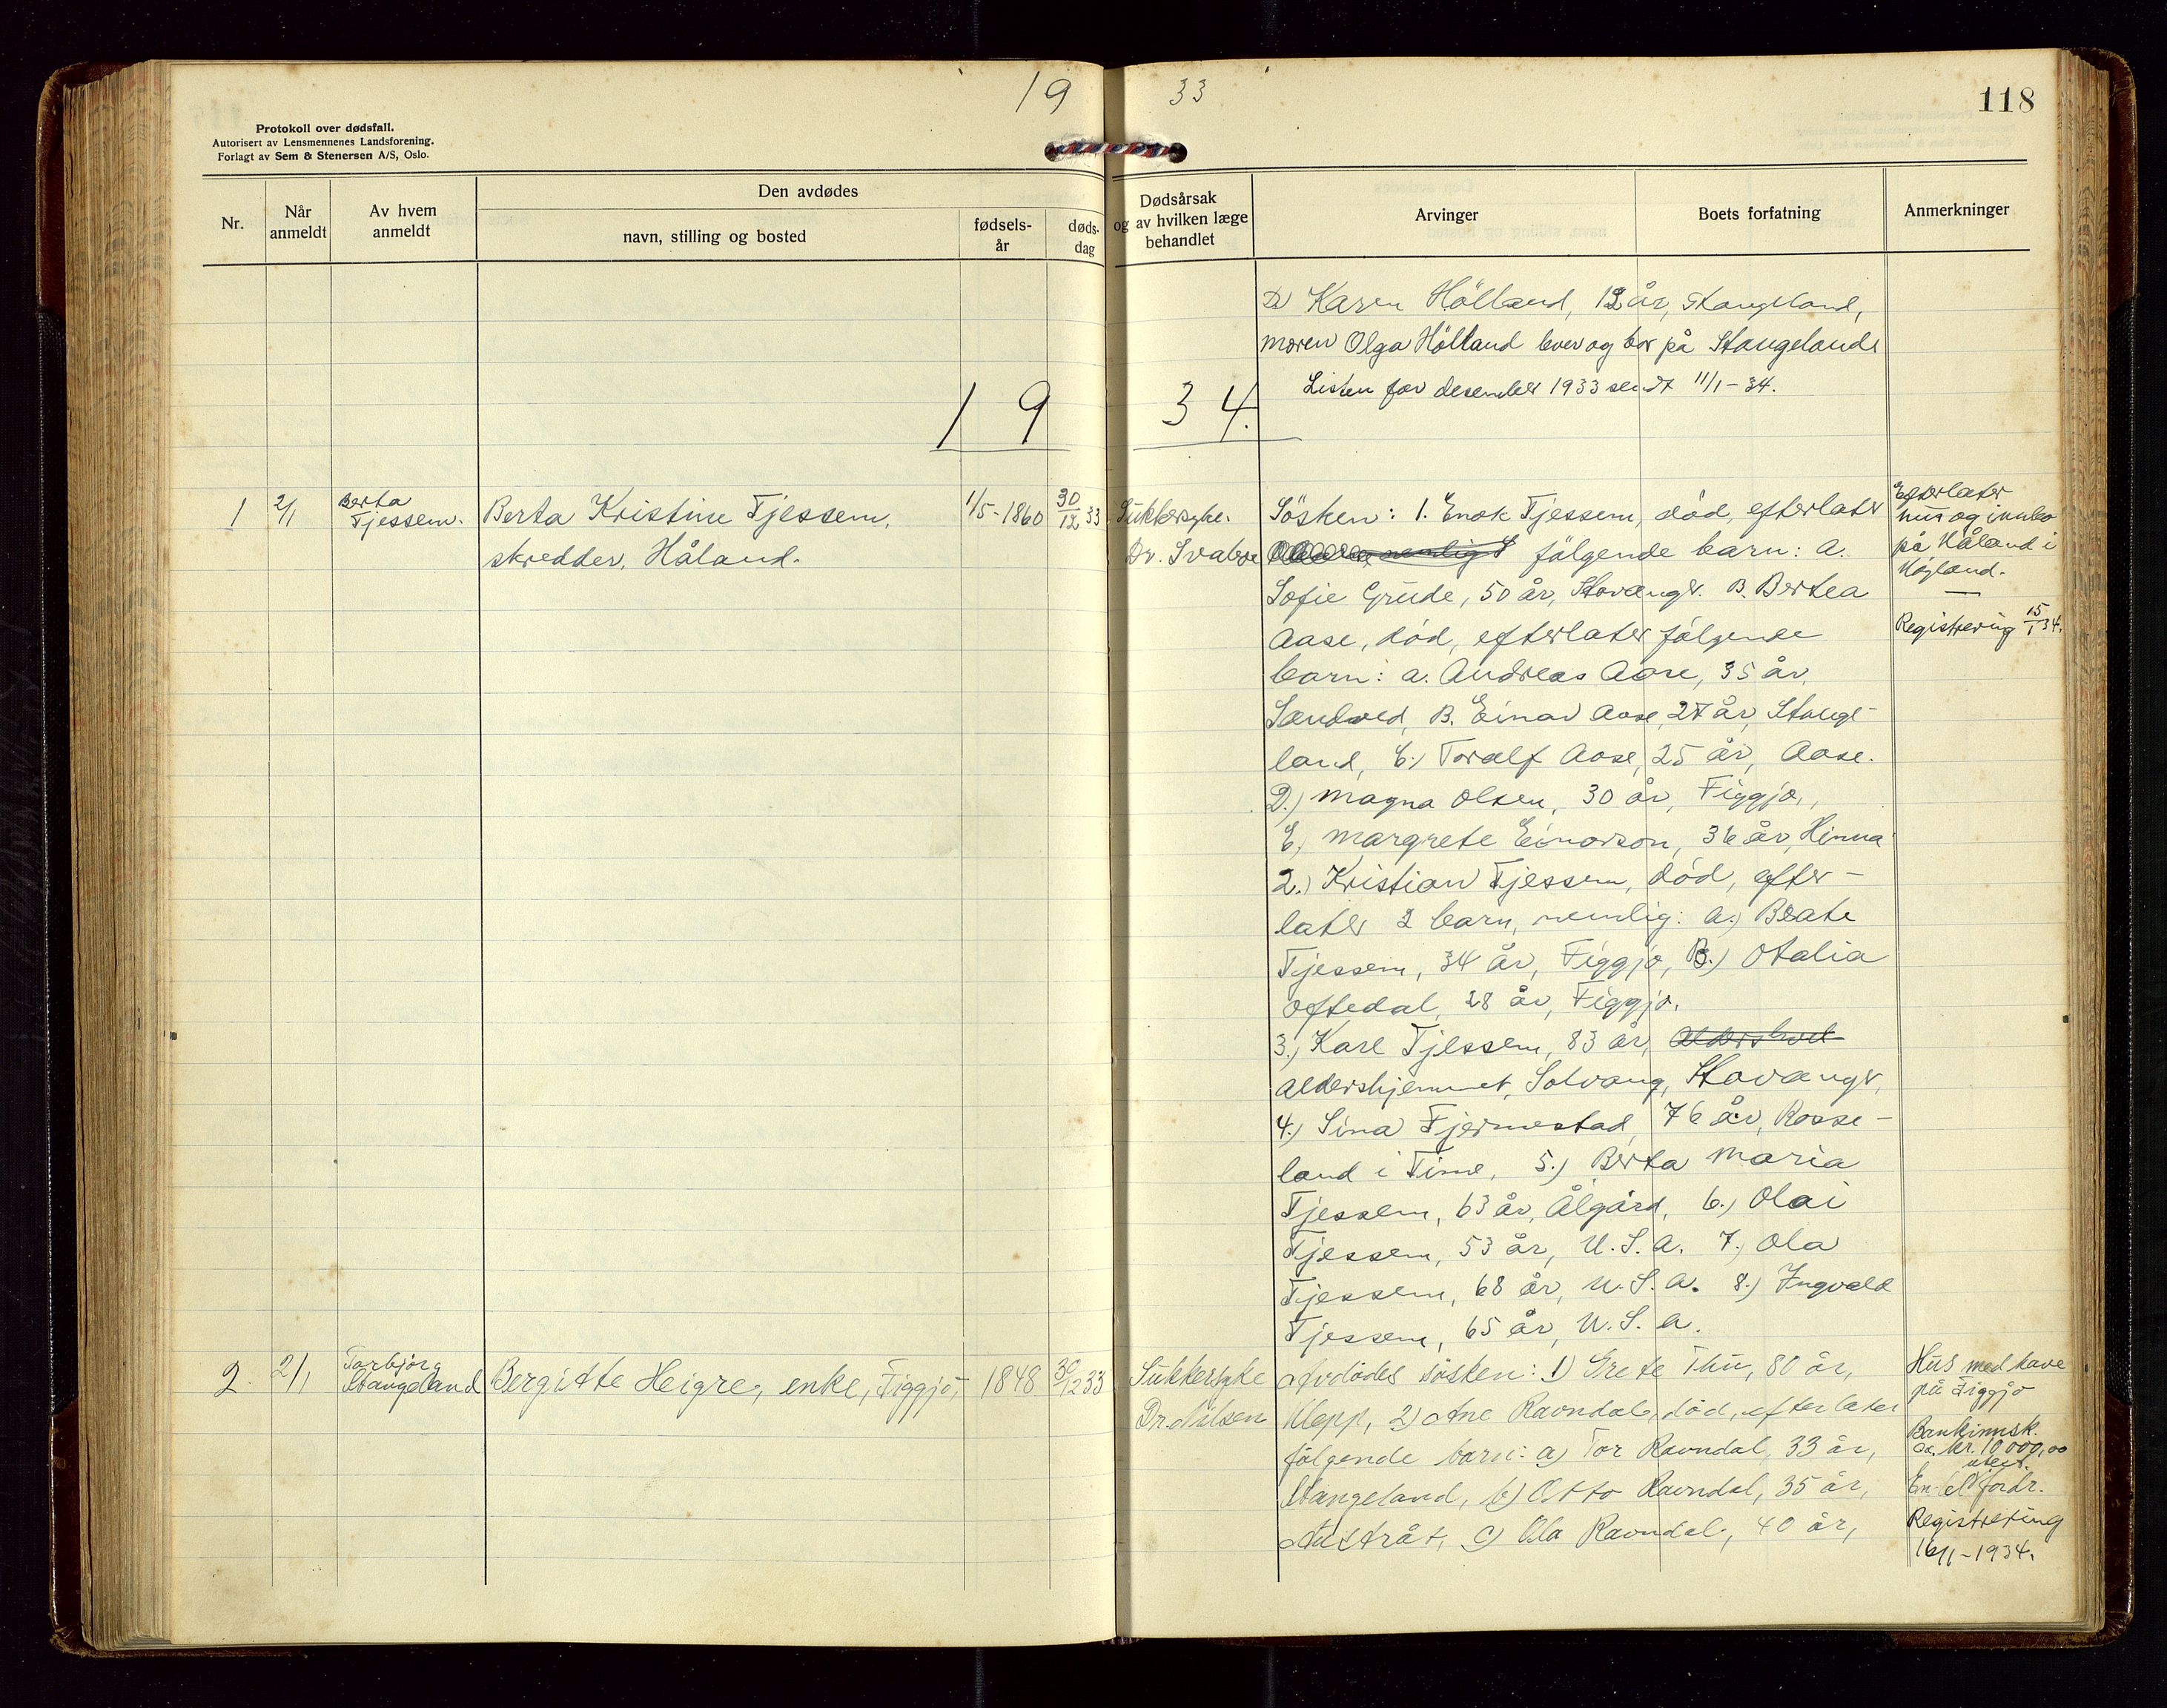 19 33
118
Protokoll over dødsfall.
Autorisert av Lensmennenes Landsforening.
Forlagt av Sem & Stenersen A/S, Oslo.
Nr.
Når anmeldt
Av hvem anmeldt
Den avdødes
navn, stilling og bosted
fødsels-år
døds-dag
Dødsårsak og av hvilken læge behandlet
Arvinger
Boets forfatning
Anmerkninger
D Karen Hölland, 12 år, Stangeland,
moren Olga Hölland lever og bor på Stangeland
Listen for desember 1933 sendt 11/1-34.
19 34.
1 2/1 Berta Tjessem.
Berta Kristine Tjessem,
skredder, Håland.
1/5-1860
30/12 33.
Sukkersyke.
Dr. Svabøe
Sösken: 1. Enok Tjessem, död, efterlater
fölgende barn: A.
Sofie Grude, 50 år, Stavanger. B. Bertea
Aase, död, efterlater fölgende
barn: a. Andreas Aase, 35 år,
Sandved, B. Einar Aase, 27 år, Stange-
land, C.) Toralf Aase, 25 år, Aase.
D.) Magna Olsen, 30 år, Figgjo,
E, Margrete Einarson, 36 år, Hinna
2.) Kristian Tjessem, död, efter-
later 2 barn, nemlig: a.) Beate
Tjessem, 34 år, Figgjo, B.) Otalia
Oftedal, 28 år, Figgjo.
3.) Karl Tjessem, 83 år,
aldershjemmet, Solvang, Stavanger,
4.) Sina Fjermestad, 76 år, Rosse-
land i Time, 5.) Berta Maria
Tjessem, 63 år, Ålgård, 6.) Olai
Tjessem, 53 år, U.S.A. 7.) Ola
Tjessem, 68 år, U.S.A. 8.) Ingvald
Tjessem, 65 år, U.S.A.
Efterlater
hus og innbo
på Håland i
Höyland.
Registrering 15/1 34.
2. 2/1 Torbjörg Stangeland
Bergitte Heigre, enke, Figgjo,
1848
30/12 33
Sukkersyke
Dr. Nilsen
Avdödes sösken: 1) Grete Thu, 80 år,
Klepp, 2) Ane Ravndal, död, efterlater
fölgende barn: a) Tor Ravndal, 33 år,
Stangeland, b) Otto Ravndal, 35 år,
Austråt, c) Ola Ravndal, 40 år,
Hus med have
på Figgjo
Bankinnsk.
ca. kr. 10000,00
En del utest. fordr.
Registrering
16/1-1934.